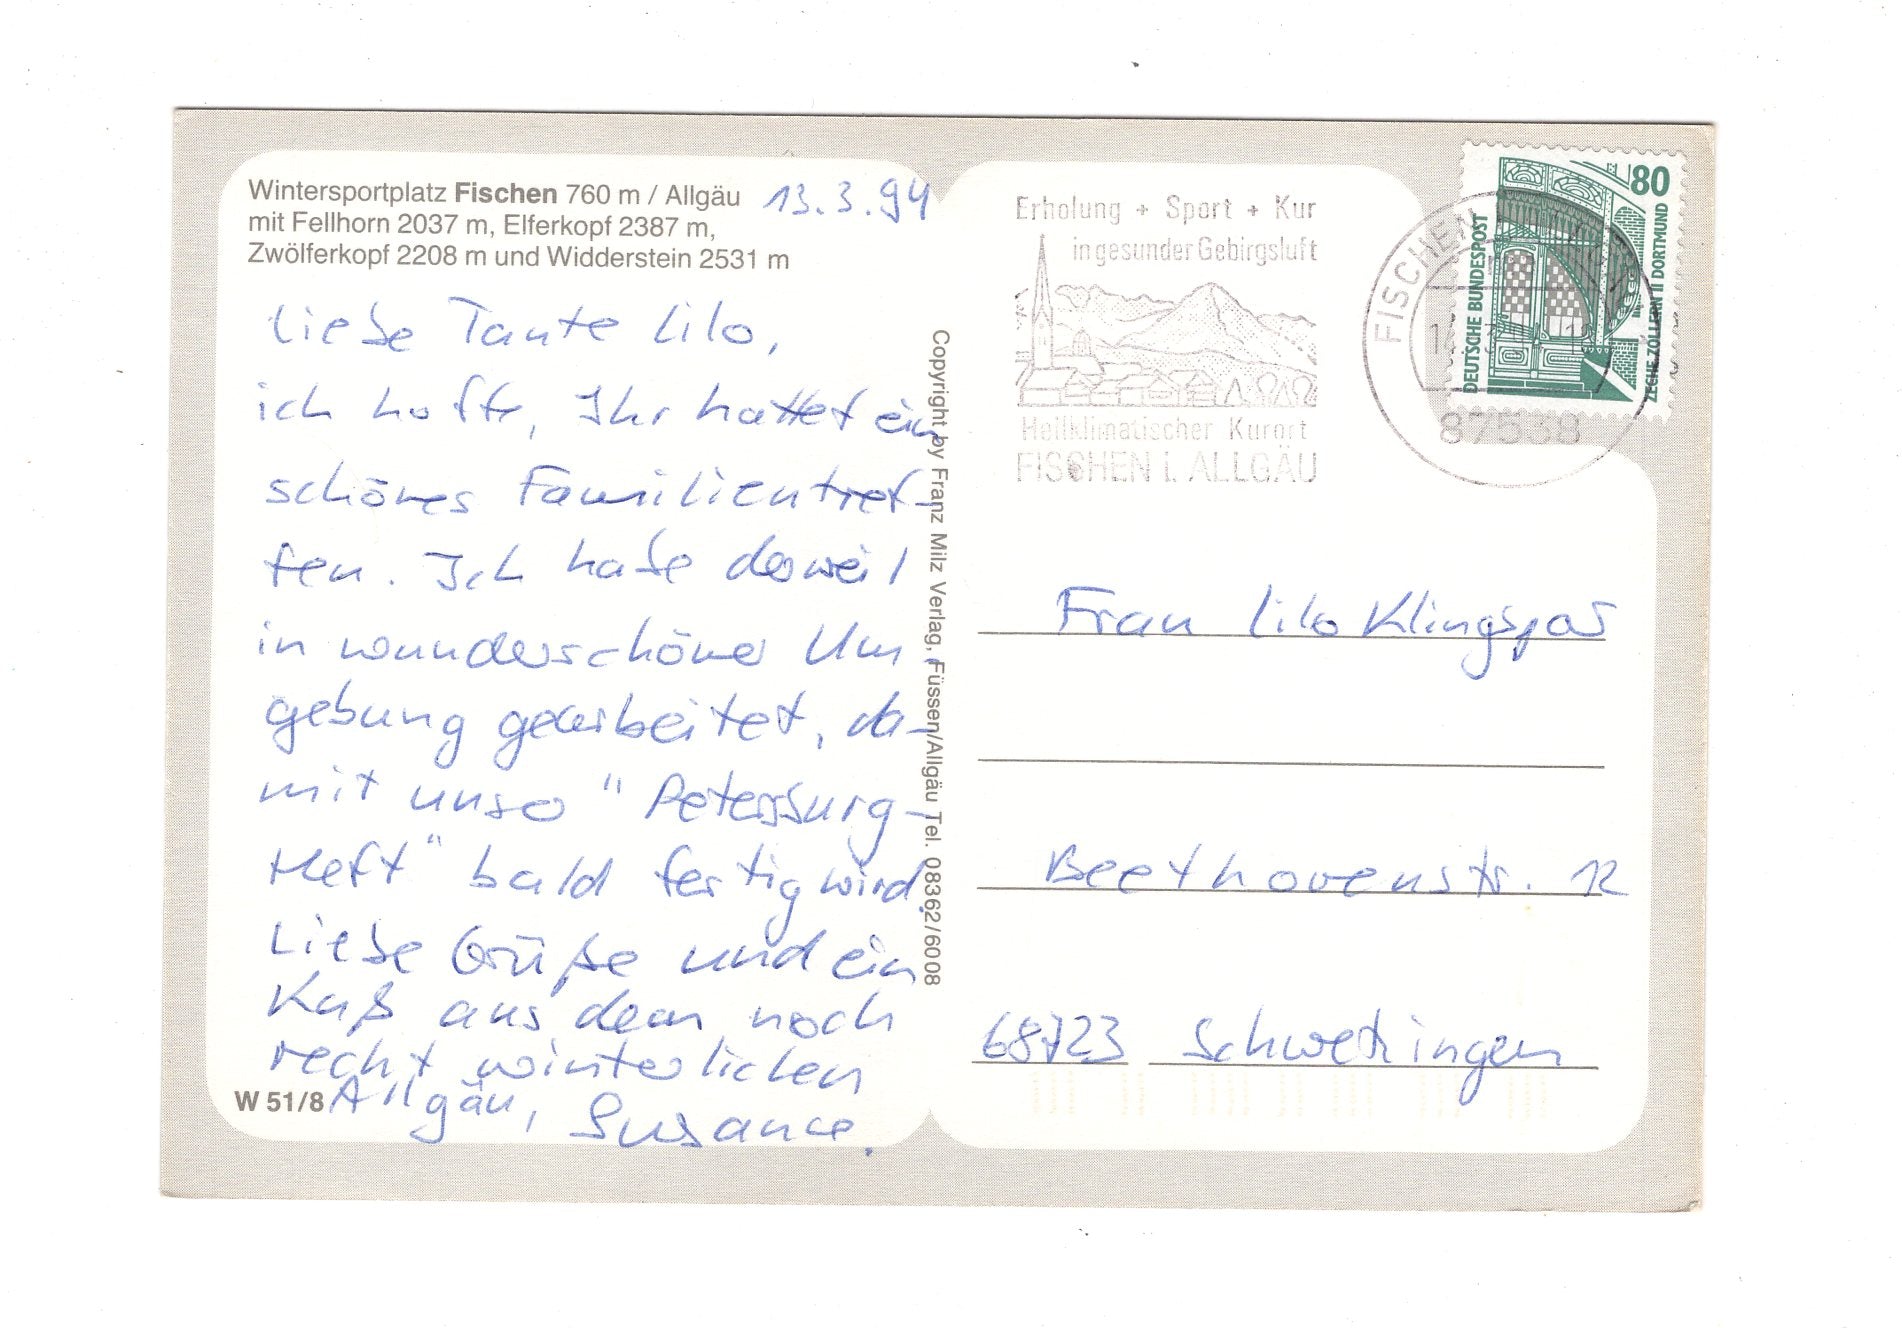 Wintersportplatz Fischen 760 m / Allgäu
mit Fellhorn 2037 m, Elferkopf 2387 m,
Zwölferkopf 2208 m und Widderstein 2531 m
13.3.94
Liebe Tante Lilo,
ich hoffe, Ihr hattet ein
schönes Familientref-
fen. Ich habe derweil
in wunderschöner Um-
gebung gearbeitet, da-
mit unser "Petersburg-
Heft" bald fertig wird.
Liebe Grüße und ein
Kuß aus dem noch
recht winterlichen
Allgäu, Susanne.
W 51/8
Copyright by Franz Milz Verlag, Füssen/Allgäu Tel. 08362/6008
Erholung + Sport + Kur
in gesunder Gebirgsluft
Heilklimatischer Kurort
FISCHEN I. ALLGÄU
FISCHEN
87538
80
DEUTSCHE BUNDESPOST
ZECHE ZOLLERN II DORTMUND
Frau Lilo Klingspor
Beethovenstr. 12
68723 Schwetzingen